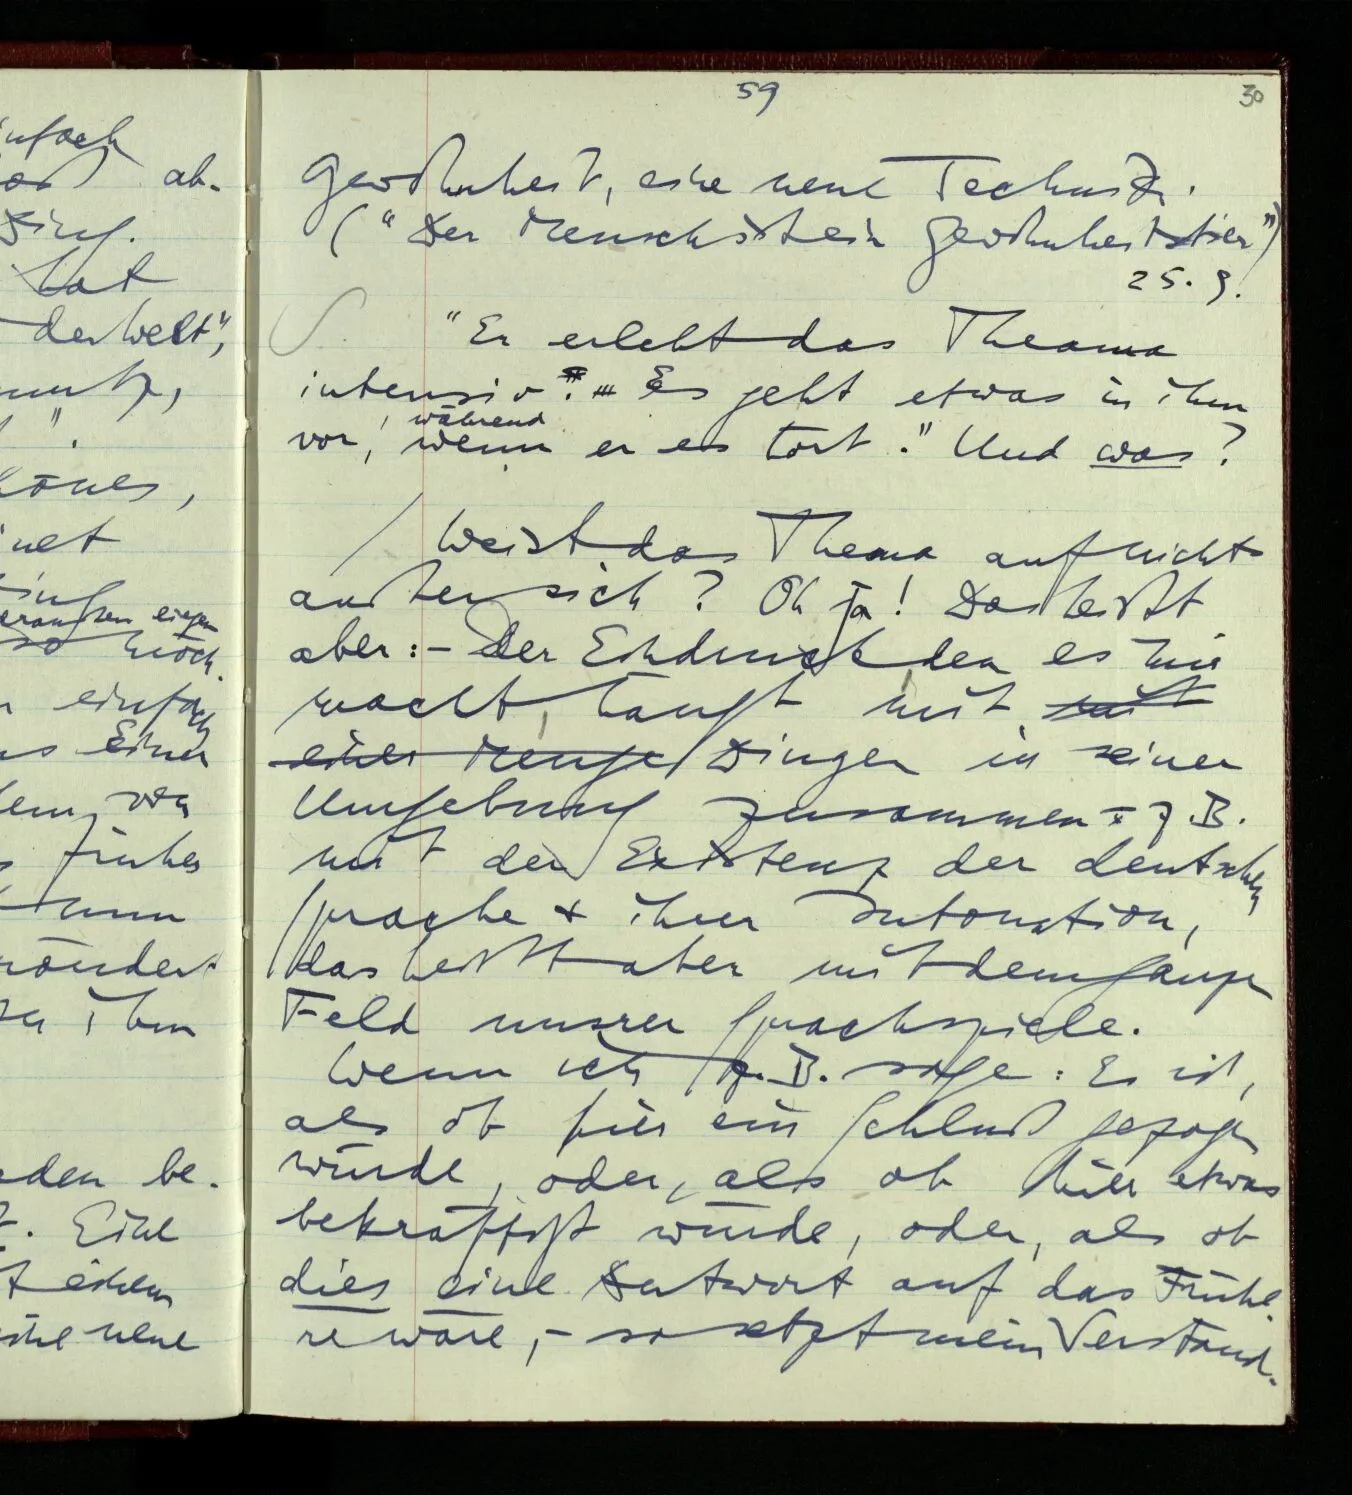 ab-
hat
der Welt",
einfach
Einen
von
früher
ihm
be-
Eine
neue
59
30
Gewohnheit, eine neue Technik.
("Der Mensch ist ein Gewohnheitstier")
25. 9.
"Er erlebt das Thema
intensiv. Es geht etwas in ihm
während
vor, wenn er es hört." Und was?
/ Weist das Thema auf nichts
außer sich? Oh ja! Das heißt
aber: – Der Eindruck den es mir
macht, hängt mit mit
einer Menge Dingen in seiner
Umgebung zusammen – z.B.
mit der Existenz der deutschen
Sprache & ihrer Intonation,
das heißt aber mit dem ganzen
Feld unsrer Sprachspiele.
Wenn ich z.B. sage: Es ist,
als ob hier ein Schluß gezogen
würde, oder, als ob hier etwas
bekräftigt würde, oder, als ob
dies eine Antwort auf das Frühe-
re wäre, – so setzt mein Verständ-